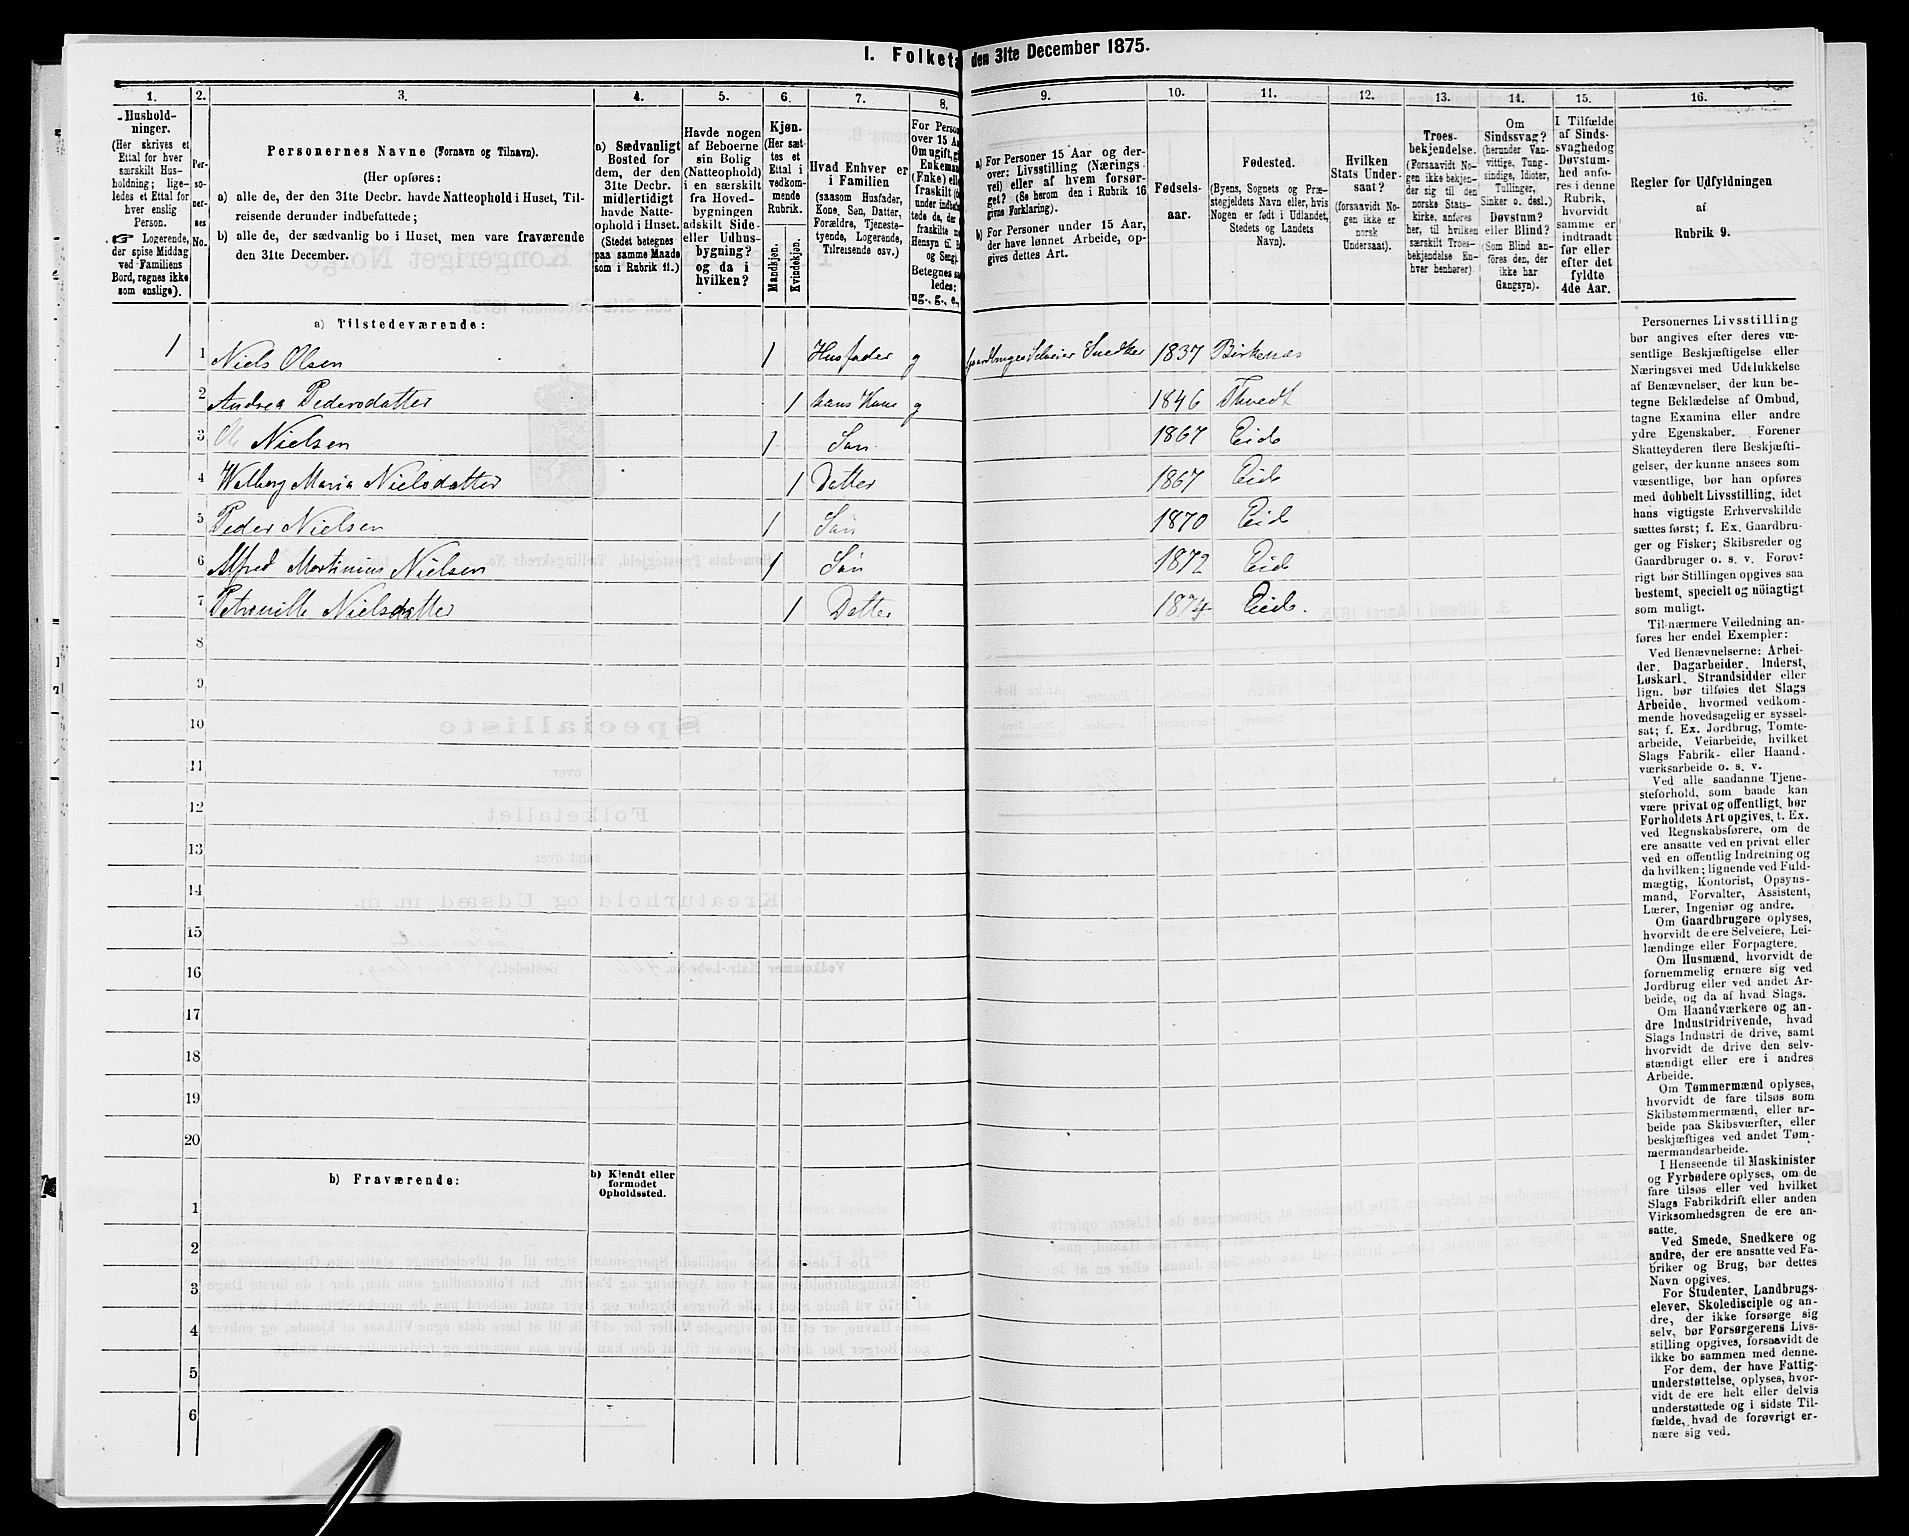 I. Folketa den 31te December 1875.
1. 2. 3. 4. 5. 6. 7. 8. 9. 10. 11. 12. 13. 14. 15. 16.
Husholdninger.
(Her skrives et
Ettal for hver
særskilt Husholdning;
ligeledes et Ettal for
hver enslig
Person.
☞ Logerende,
der spise Middag
ved Familiens
Bord, regnes ikke
som enslige).
Personernes No.
Personernes Navne (Fornavn og Tilnavn).
(Her opføres:
a) alle de, der den 31te Decbr. havde Natteophold i Huset, Tilreisende derunder indbefattede;
b) alle de, der sædvanlig bo i Huset, men vare fraværende
den 31te December.
a) Sædvanligt
Bosted for
dem, der den
31te Decbr.
midlertidigt
havde Natteophold i Huset.
(Stedet betegnes
paa samme Maade
som i Rubrik 11.)
Havde nogen
af Beboerne
sin Bolig
(Natteophold)
i en særskilt
fra Hovedbygningen
adskilt Side-
eller Udhusbygning?
og da i
hvilken?
Kjøn.
(Her sættes et
Ettal i
vedkommende
Rubrik.
Mandkjøn.
Kvindekjøn.
Hvad Enhver er
i Familien
(saasom Husfader,
Kone, Søn, Datter,
Forældre, Tjenestetyende, Logerende,
Tilreisende osv.)
For Person
over 15 Aa
Om ugift, g
Enkeman
(Enke) elle
fraskilt (
under indbefattede de, der
fraskilte
Hensyn til B
og Seng)
Betegnes saaledes:
ug., g., e.,
a) For Personer 15 Aar og derover: Livsstilling (Næringsvei) eller af hvem forsørget? (Se herom den i Rubrik 16
givne Forklaring).
b) For Personer under 15 Aar,
der have lønnet Arbeide, opgives dettes Art.
Fødselsaar.
Fødested.
(Byens, Sognets og Præstegjeldets Navn, eller, hvis
Nogen er født i Udlandet,
Stedets og Landets
Navn).
Hvilken
Stats Undersaat?
(forsaavidt Nogen ikke er
norsk
Undersaat).
Troesbekjendelse.
(Forsaavidt Nogen ikke bekjender sig til den
norske Statskirke, anføres
her, til hvilken
særskilt Troesbekjendelse Enhver henhører).
Om
Sindssvag?
(herunder Vanvittige, Tungsindige, Idioter,
Tullinger,
Sinker o. desl.)
Døvstum?
eller Blind?
(Som Blind anføres den, der
ikke har
Gangsyn).
I Tilfælde
af Sindssvaghed og
Døvstumhed anføres i denne
Rubrik,
hvorvidt
samme er
indtraadt
før eller
efter det
fyldte
4de Aar.
Regler for Udfyldningen
af
Rubrik 9.
a) Tilstedeværende:
1 1 Niels Olsen 1 Husfader g Gaardbruger Selveier Snedker 1837 Birkenæs
2 Andrea Pedersdatter 1 hans Kone g 1846 Thvedt
3 Ole Nielsen 1 Søn 1867 Eide
4 Walborg Maria Nielsdatter 1 Datter 1867 Eide
5 Peder Nielsen 1 Søn 1870 Eide
6 Alfred Martinius Nielsen 1 Søn 1872 Eide
7 Petronille Nielsdatter 1 Datter 1874 Eide.
8
9
10
11
12
13
14
15
16
17
18
19
20
b) Fraværende:
b) Kjendt eller
formodet
Opholdssted.
1
2
3
4
5
6
Personernes Livsstilling
bør angives efter deres væsentlige Beskjæftigelse eller
Næringsvei med Udelukkelse
af Benævnelser, der kun betegne Beklædelse af Ombud,
tagne Examina eller andre
ydre Egenskaber. Forener
Skatteyderen flere Beskjæftigelser, der kunne ansees som
væsentlige, bør han opføres
med dobbelt Livsstilling, idet
hans vigtigste Erhvervskilde
sættes først; f. Ex. Gaardbruger og Fisker; Skibsreder og
Gaardbruger o. s. v. Forøvrigt bør Stillingen opgives saa
bestemt, specielt og nöiagtigt
som muligt.
Til nærmere Veiledning anføres her endel Exempler:
Ved Benævnelserne: Arbeider, Dagarbeider, Inderst,
Løskarl, Strandsidder eller
lign. bør tilføies det Slags
Arbeide, hvormed vedkommende hovedsagelig er sysselsat; f. Ex. Jordbrug, Tomtearbeide, Veiarbeide, hvilket
Slags Fabrik- eller Haandværksarbeide o. s. v.
Ved alle saadanne Tjenesteforhold, som baade kan
være privat og offentligt, bør
Forholdets Art opgives, t. Ex.
ved Regnskabsførere, om de
ere ansatte ved en privat eller
ved en offentlig Indretning og
da hvilken; lignende ved Fuldmægtig, Kontorist, Opsynsmand, Forvalter, Assistent,
Lærer, Ingeniør og andre.
Om Gaardbrugere oplyses,
hvorvidt de ere Selveiere, Leilændinge eller Forpagtere.
Om Husmænd, hvorvidt de
fornemmelig ernære sig ved
Jordbrug eller ved andet Arbeide, og da af hvad Slags.
Om Haandværkere og andre Industridrivende, hvad
Slags Industri de drive, samt
hvorvidt de drive den selvstændigt eller ere i andres
Arbeide.
Om Tømmermænd oplyses,
hvorvidt de fare tilsøs som
Skibstømmermænd, eller arbeide paa Skibsværfter, eller
beskjæftiges ved andet Tømmermandsarbeide.
I Henseende til Maskinister
og Fyrbødere oplyses, om de
fare tilsøs eller ved hvilket
Slags Fabrikdrift eller anden
Virksomhedsgren de ere ansatte.
Ved Smede, Snedkere og
andre, der ere ansatte ved Fabriker og Brug, bør dettes
Navn opgives.
For Studenter, Landbrugselever, Skoledisciple og andre, der ikke forsørge sig
selv, bør Forsørgerens Livsstilling opgives, forsaavidt de
ikke bo sammen med denne.
For dem, der have Fattigunderstøttelse, oplyses, hvorvidt de ere helt eller delvis
understøttede og i sidste Tilfælde, hvad de forøvrigt ernære sig ved.